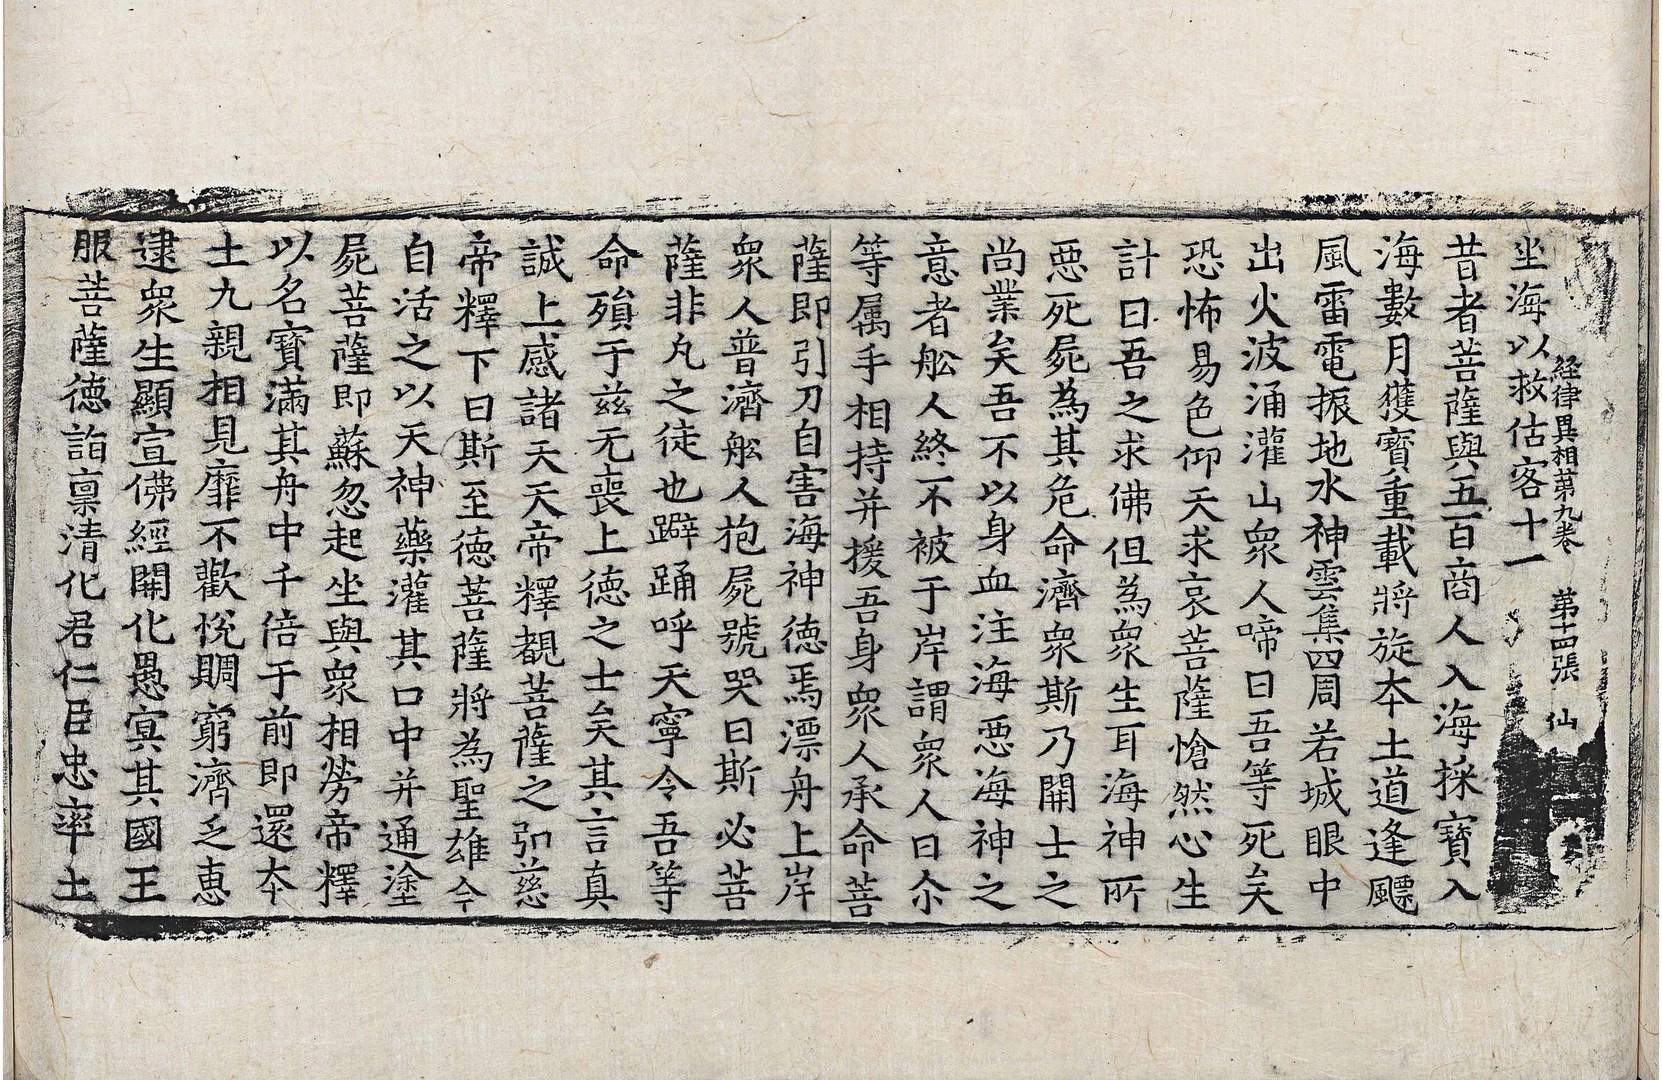 経律異相第九卷 第十四張 仙
坐海以救估客十一
昔者菩薩與五百商人入海採寶入
海數月獲寶重載將旋夲土道逢飃
風雷電振地水神雲集四周若城眼中
出火波涌灌山衆人啼曰吾等死矣
恐怖易色仰天求哀菩薩愴然心生
計曰吾之求佛但為衆生耳海神所
惡死屍為其危命濟衆斯乃開士之
尚業矣吾不以身血注海惡海神之
意者舩人終不被于岸謂衆人曰尒
等属手相持并援吾身衆人承命菩
薩即引刀自害海神德焉漂舟上岸
衆人普濟舩人抱屍號哭曰斯必菩
薩非凢之徒也躃踊呼天寧令吾等
命殞于茲无喪上德之士矣其言真
誠上感諸天天帝釋覩菩薩之弘慈
帝釋下曰斯至德菩薩將為聖雄今
自活之以天神藥灌其口中并通塗
屍菩薩即蘇忽起坐與衆相勞帝釋
以名寶滿其舟中千倍于前即還夲
土九親相見靡不歡恱賙窮濟乏惠
逮衆生顯宣佛經開化愚㝠其國王
服菩薩德詣稟清化君仁臣忠率土